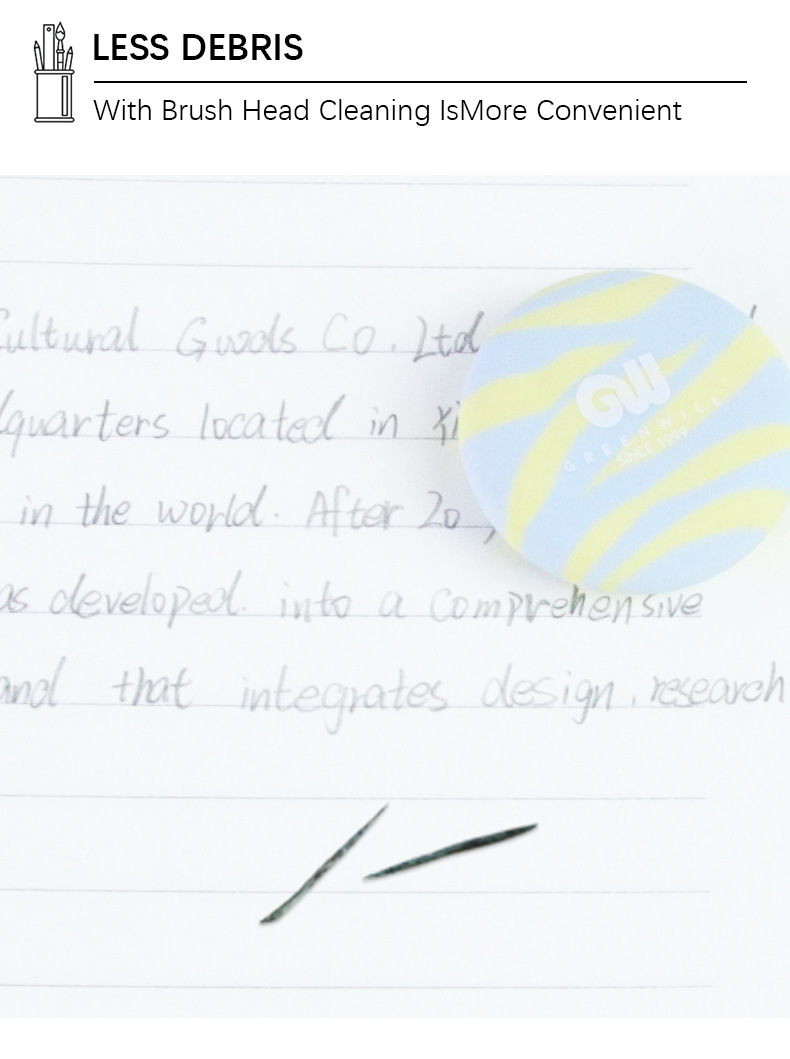 LESS DEBRIS
With Brush Head Cleaning IsMore Convenient
Cultural Goods Co. Ltd
GW
GREENWILL
SINCE 1999
quarters located in Xi
in the world. After 20,
as developed. into a comprehensive
and that integrates design. research